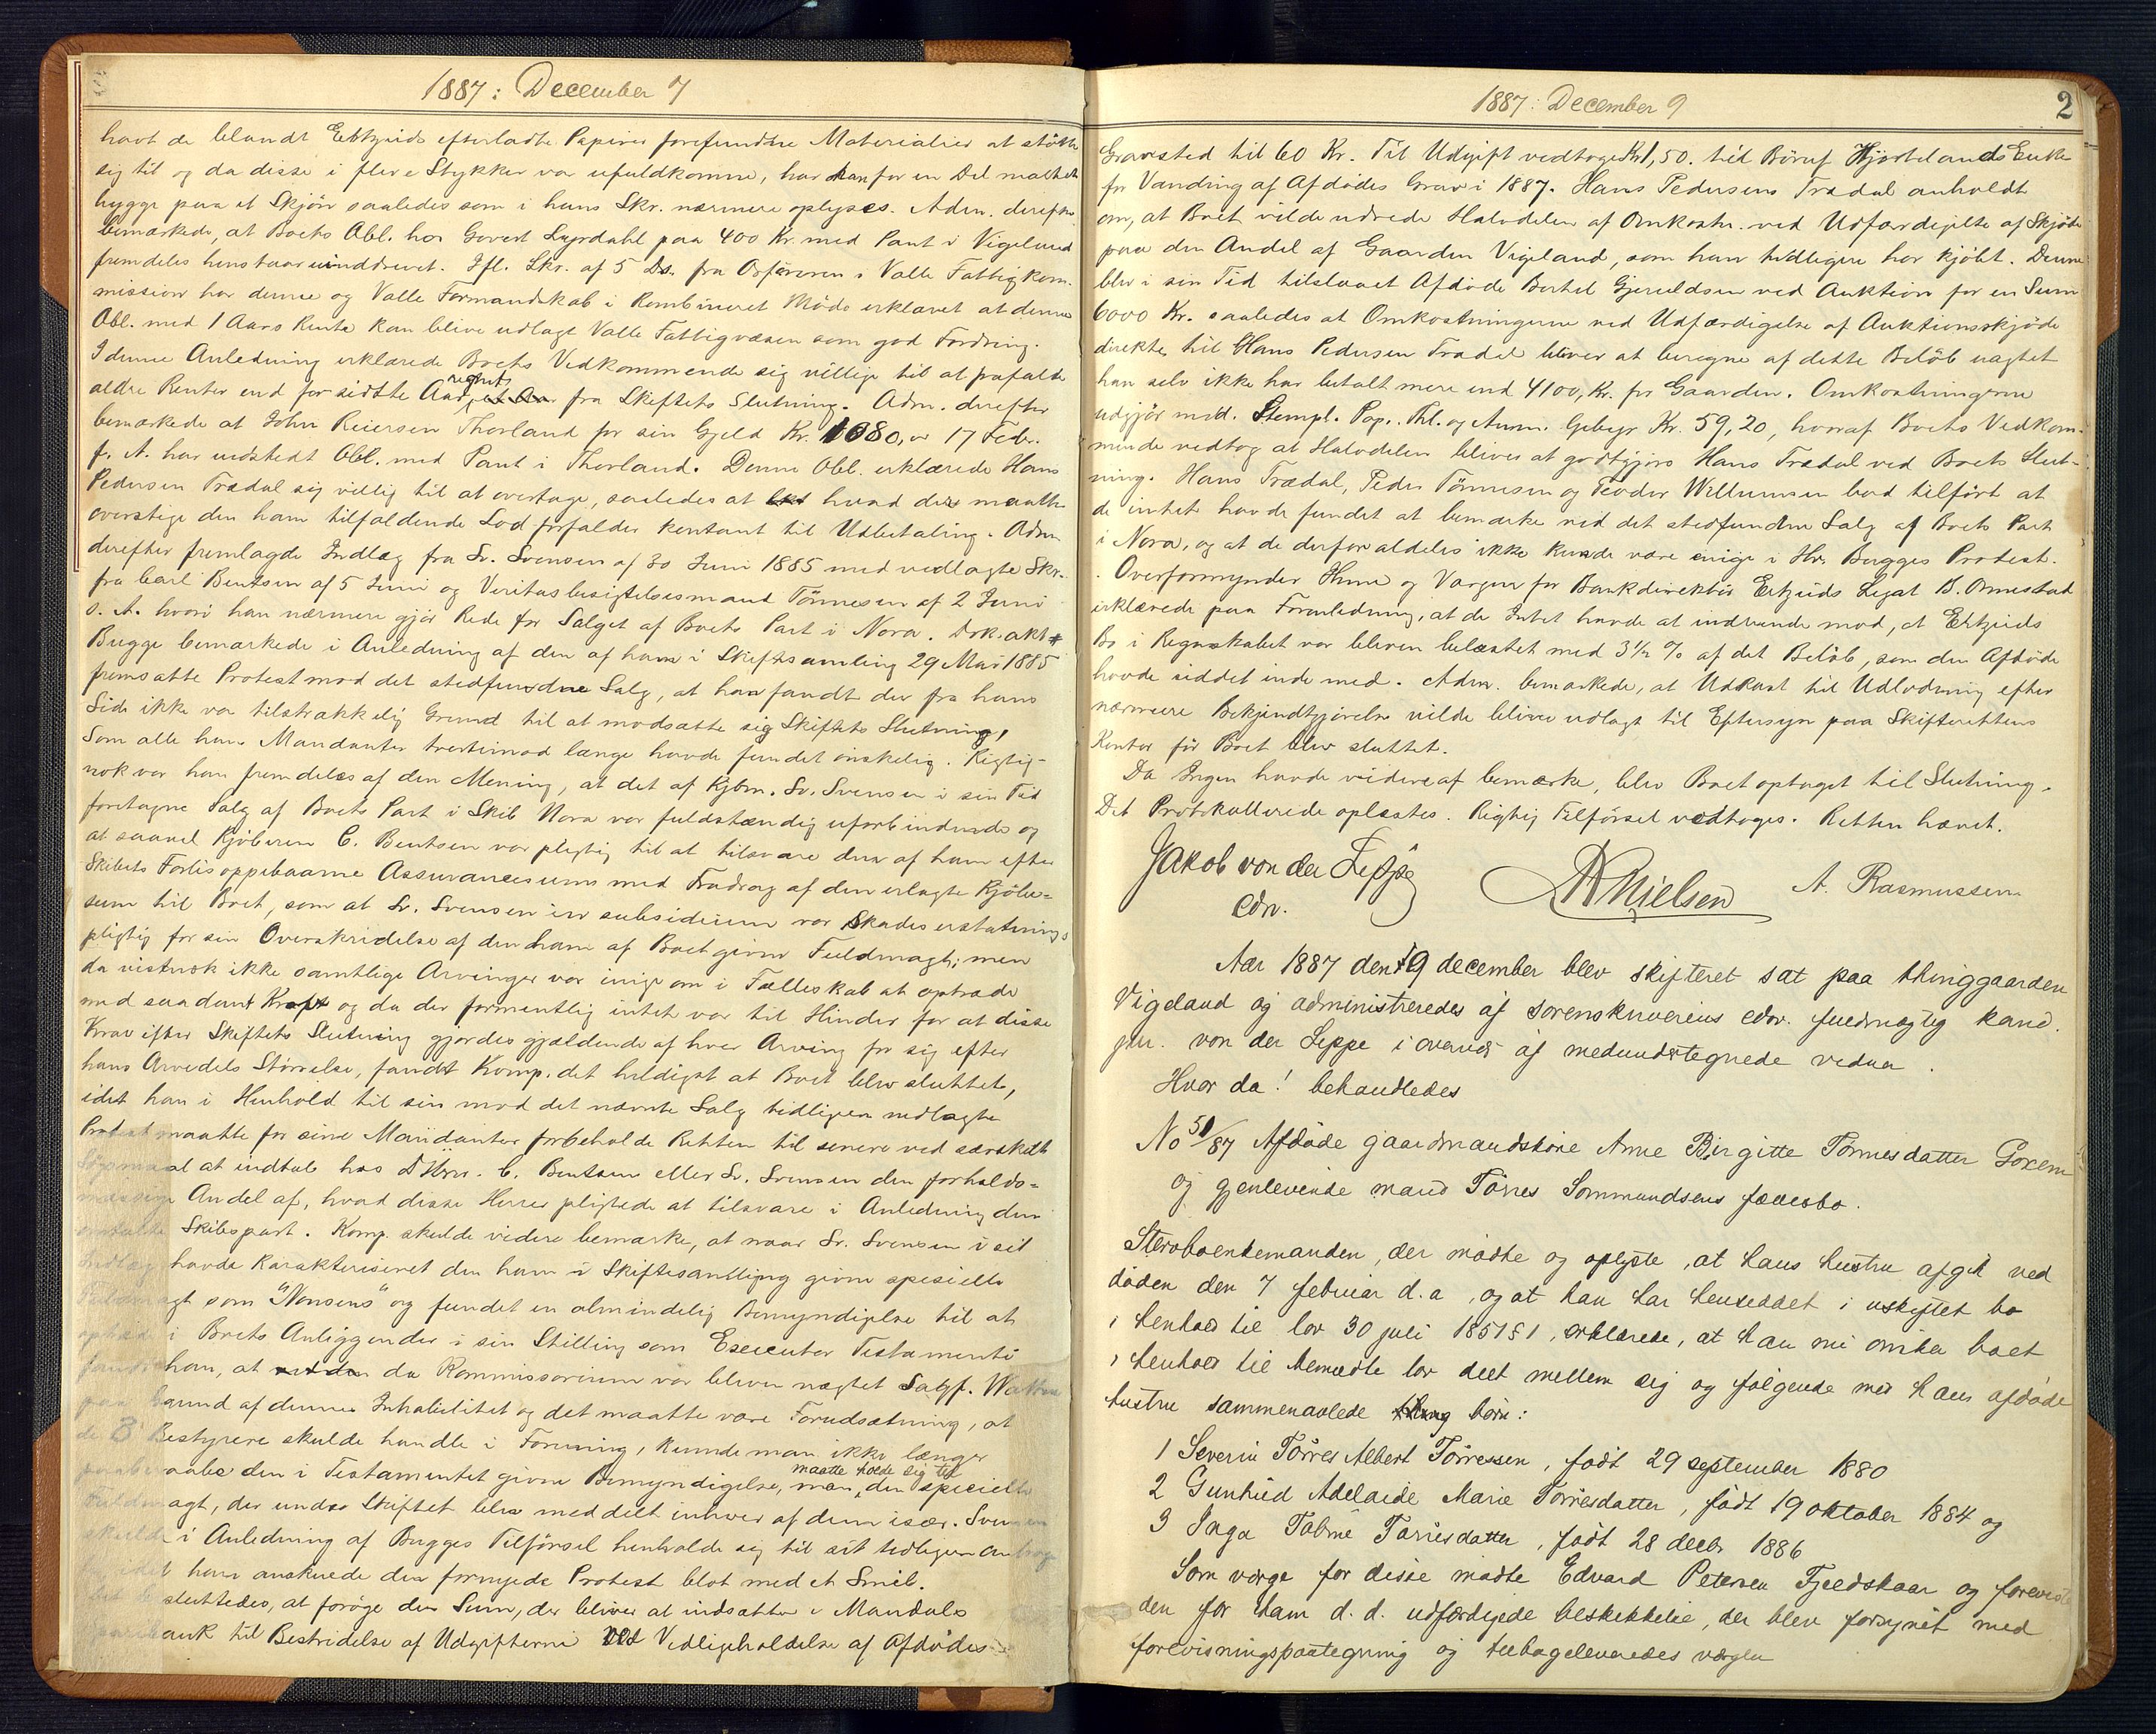 1887: December 7
havt de blandt Ebtzrids efterladte Papirer forefundne Materialier at støtte
sig til og da disse i flere Stykker var ufuldkomne, har han for en Del maattet
bygge paa et Skjøn saaledes som i hans Skr. nærmere oplyses. Adm. derefter
bemærkede, at Boets Obl. hos Govert Lyrdahl paa 400 Kr. med Pant i Vigeland
fremdeles henstaar uinddrevet. Ifl. Skr. af 5 Ds. fra Ordføreren i Valle Fattigkom-
mission har denne og Valle Formandskab i Kombineret Møde erklæret at denne
Obl. med 1 Aars Rente kan blive udlagt Valle Fattigvæsen som god Fordring.
I denne Anledning erklærede Boets Vedkommende sig villige til at frafalde
ældre Renter end for sidste Aar regnet fra Skiftets Slutning. Adm. derefter
bemærkede at John Reiersen Thorland for sin Gjeld Kr. 1080, 17 Febr.
f. A. har udstedt Obl. med Pant i Thorland. Denne Obl. erklærede Hans
Pedersen Trædal sig villig til at overtage, saaledes at hvad der maatte
overstige den ham tilfaldende Lod forfalder kontant til Udbetaling. Adm
derefter fremlagde Indlæg fra Sr. Svensen af 30 Juni 1885 med vedlagte Skr.
fra Carl Bentsen af 5 Juni og Veritasbesigtelsesmand Tønnesen af 2 Juni
s. A. hvori han nærmere gjør Rede for Salget af Boets Part i Nora. Dok. akt
Bugge bemærkede i Anledning af den af ham i Skiftesamling 29 Mai 1885
fremsatte Protest mod det stedfundne Salg, at han fandt der fra hans
Side ikke var tilstrækkelig Grund til at modsætte sig Skiftets Slutning,
som alle hans Mandanter tvertimod længe havde fundet ønskelig. Rigtig-
nok var han fremdeles af den Mening, at det af Kjbm. Sv. Svensen i sin Tid
foretagne Salg af Boets Part i Skib Nora var fuldstændig uforbindende og
at saavel Kjøberen C. Bentsen var pligtig til at tilsvare den af ham efter
Skibets Forlis oppebaarne Assurancesum med Fradrag af den erlagte Kjøbe-
sum til Boet, som at Sr. Svensen in subsidium var Skadeserstatnings
pligtig for sin Overskridelse af den ham af Boet givne Fuldmagt; men
da vistnok ikke samtlige Arvinger var enige om i Fælleskab at optræde
med saadant Krav og da der formentlig intet var til Hinder for at disse
Krav efter Skiftets Slutning gjordes gjældende af hver Arving for sig efter
hans Arvedels Størrelse, fandt Komp. det heldigst at Boet blev sluttet,
idet han i Henhold til sin mod det nævnte Salg tidligere nedlagte
Protest maatte for sine Mandanter forbeholde Retten til senere ved særskilt
Søgsmaal at indtale hos Hrr. C. Bentsen eller Sr. Svensen den forholds-
mæssige Andel af, hvad disse Herrer pligtede at tilsvare i Anledning den
omtalte Skibspart. Komp. skulde videre bemærke, at naar Sr. Svensen i sit
Indlæg havde karakteriseret den ham i Skiftesamling givne specielle
Fuldmagt som "Nonsens" og fundet en almindelig Bemyndigelse til at
optræde i Boets Anliggender i sin Stilling som Executor Testamenti
fandt han, at da Kommissorium var bleven nægtet Sagf.
paa Grund af dennes Inhabilitet og det maatte være Forudsætning, at
de 3 Bestyrere skulde handle i Forening, kunde man ikke længer
paaberaabe den i Testamentet givne Bemyndigelse, men maatte holde sig til den specielle
Fuldmagt, der under Skiftet blev meddelt enhver af dem især. Svensen
skulde i Anledning af Bugges Tilførsel henholde sig til sit tidligere
idet han anskuede den fornyede Protest blot med et Smil.
Det besluttedes, at forøge den Sum, der bliver at indsætte i Mandals
Sparebank til Bestridelse af Udgifterne ved Vedligeholdelse af Afdødes
1887: December 9
2
Gravsted til 60 Kr. Til Udgift vedtoges Kr 1,50. til Børuf Hjortelands Enke
for Vanding af Afdødes Grav i 1887. Hans Pedersens Trædal anholdt
om, at Boet vilde udrede Halvdelen af Omkostn. ved Udfærdigelse af Skjøde
paa den Andel af Gaarden Vigeland, som han tidligere har kjøbt. Denne
blev i sin Tid tilslaaet Afdøde Bertel Gjeruldsen ved Auktion for en Sum
6000 Kr. saaledes at Omkostningerne ved Udfærdigelse af Auktionsskjøde
direkte til Hans Pedersen Trædal bliver at beregne af dette Beløb uagtet
han selv ikke har betalt mere end 4100, Kr. for Gaarden. Omkostningerne
udgjør med. Stempl. Pap., Thl. og Aurm. Gebyr Kr. 59,20, hvoraf Boets Vedkom-
mende vedtog at Halvdelen bliver at godtgjøre Hans Trædal ved Boets Slut-
ning. Hans Trædal, Peder Tønnesen og Teodor Willumsen bad tilført at
de intet havde fundet at bemærke ved det stedfundne Salg af Boets Part
i Nora, og at de derfor aldeles ikke kunde være enige i Hr. Bugges Protest.
Overformynder Hune og Værgen for Bankdirektør Ertzrids Legat B. Ormestad
erklærede paa Foranledning, at de Intet havde at indvende mod, at Ebtzrids
Bo i Regnskabet var bleven belastet med 3½ % af det Beløb, som den Afdøde
havde siddet inde med. Adm. bemærkede, at Udkast til Udlodning efter
nærmere Bekjendtgjørelse vilde blive udlagt til Eftersyn paa Skifterettens
Kontor før Boet blev sluttet.
Da Ingen havde videre at bemærke, blev Boet optaget til Slutning.
Det Protokollerede oplæstes. Rigtig Tilførsel vedtoges. Retten hævet.
Jakob von der Lippe
edv.
A Nielsen
A. Rasmussen
Aar 1887 den 9 december blev skifteret sat paa thinggaarden
Vigeland og administreredes af sorenskriverens edsv. fuldmægtig kand.
jur. von der Lippe i overvær af medundertegnede vidner.
Hvor da! behandledes
No 51/87 Afdøde gaardmandskone Anne Birgitte Tønnesdatter Goxem
og gjenlevende mand Tørres Sommundsens fællesbo.
Stervboenkemanden, der mødte og oplyste, at hans hustru afgik ved
døden den 7 februar d. a, og at han har henseddet i uskiftet bo
i henhold til lov 30 juli 1851 § 1, erklærede, at han nu ønsker boet
i henhold til bemeldte lov delt mellem sig og følgende med hans afdøde
hustru sammenavlede børn:
1 Severin Tørres Albert Tørressen, født 29 september 1880
2 Gunhild Adelaide Marie Tørresdatter, født 19 oktober 1884 og
3 Inga Tobine Tørresdatter, født 28 decbr 1886
Som værge for disse mødte Edvard Petersen Fjeldskaar og foreviste
den for ham d. d. udfærdigede beskikkelse, der blev forsynet med
forevisningspaategning og tilbageleveredes værgen